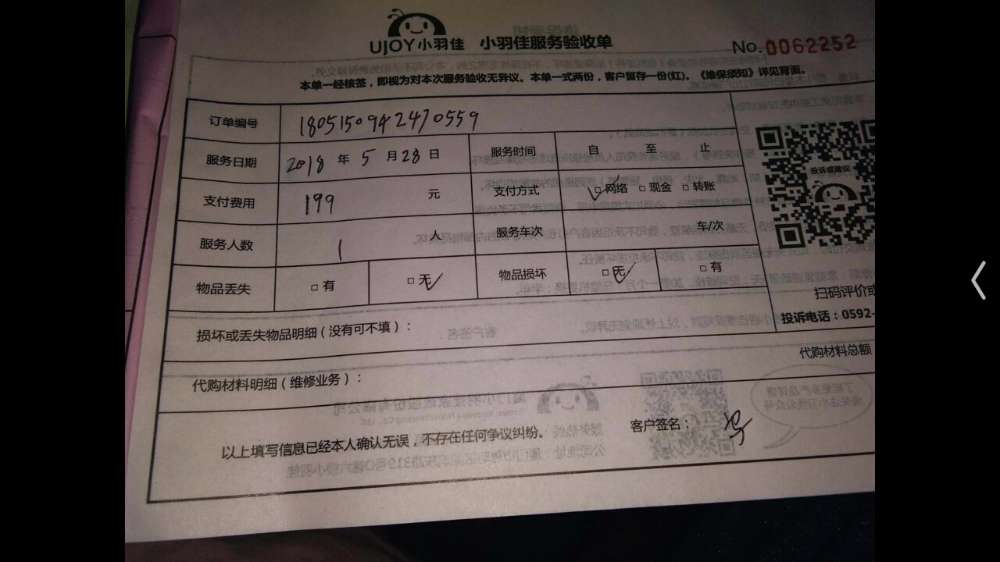 UJOY小羽佳 小羽佳服务验收单
No.0062252
本单一经核签，即视为对本次服务验收无异议。本单一式两份，客户留存一份(红)。《维保须知》详见背面。
订单编号 1805150942470559
服务日期 2018 年 5 月 28 日 服务时间 自 至 止
支付费用 199 元 支付方式 □网络 □现金 □转账
服务人数 1 人 服务车次 车/次
物品丢失 □有 □无 物品损坏 □无 □有
扫码评价或
投诉电话：0592-
损坏或丢失物品明细（没有可不填）：
代购材料总额
代购材料明细（维修业务）：
以上填写信息已经本人确认无误，不存在任何争议纠纷。 客户签名：